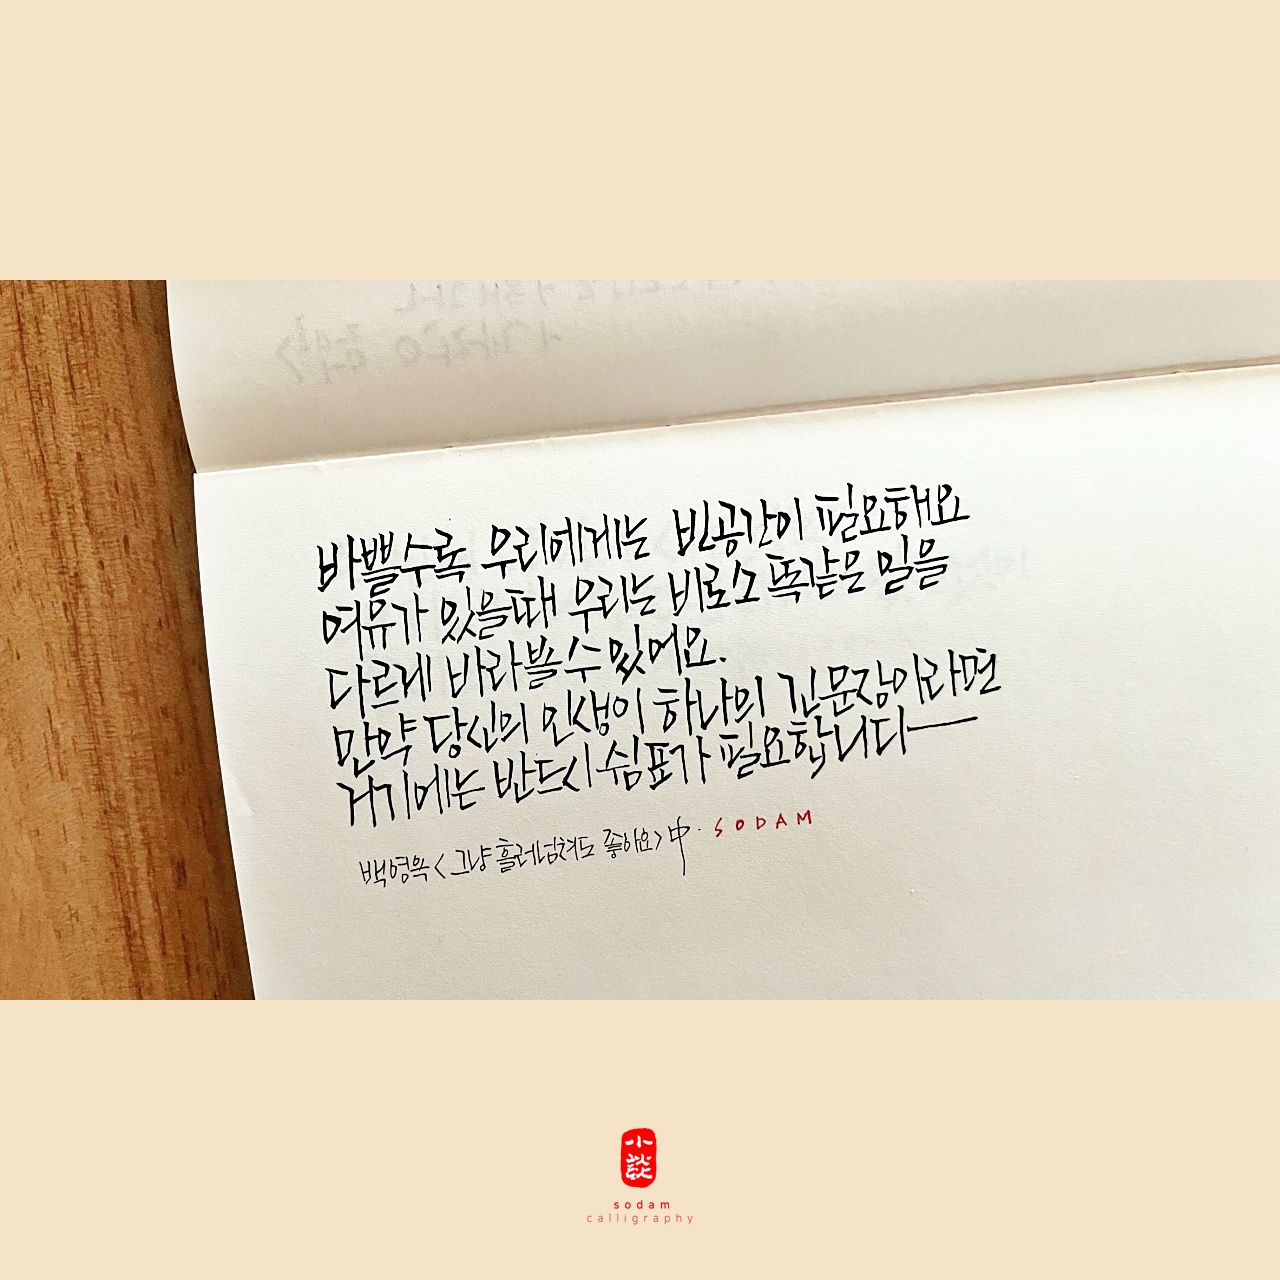 바쁠수록 우리에게는 빈공간이 필요해요
여유가 있을때 우리는 비로소 똑같은 일을
다르게 바라볼수있어요.
만약 당신의 인생이 하나의 긴문장이라면
거기에는 반드시 쉼표가 필요합니다
백영옥 <그냥 흘러넘쳐도 좋아요> 中. SODAM
小談
sodam
calligraphy